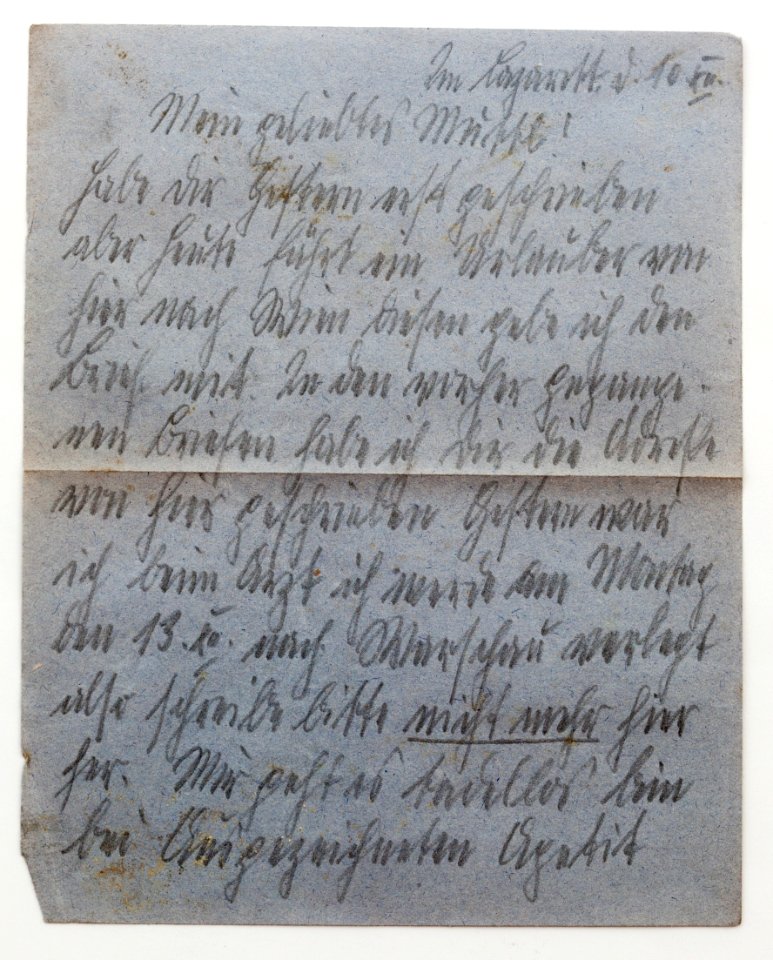 Im Lazarett d. 10 XII.
Mein geliebtes Mutti!
Habe dir Gestern erst geschrieben
aber heute fährt ein Urlauber von
hier nach Wien diesen gebe ich den
Brief mit. In den vorher gegange-
nen Briefen habe ich dir die Adresse
von hier geschrieben Gestern war
ich beim Arzt ich werde am Montag
den 13. XII. nach Warschau verlegt
also schreibe bitte nicht mehr hier
her. Mir geht es tadellos bin
bei Ausgezeichneten Apetit